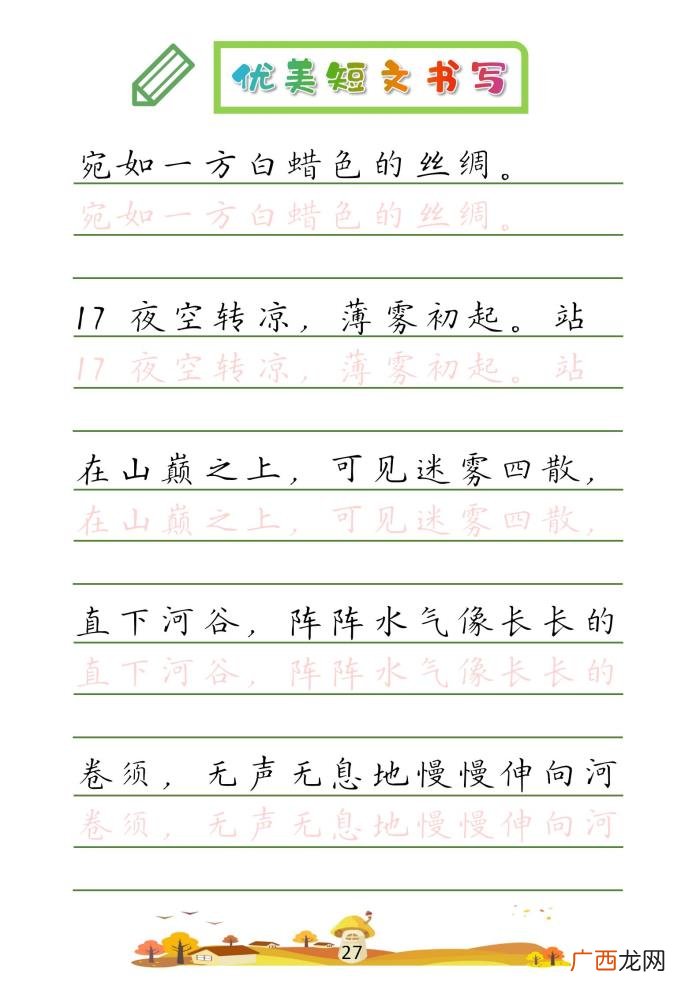 优美短文书写
宛如一方白蜡色的丝绸。
宛如一方白蜡色的丝绸。
17 夜空转凉，薄雾初起。站
17 夜空转凉，薄雾初起。站
在山巅之上，可见迷雾四散，
在山巅之上，可见迷雾四散，
直下河谷，阵阵水气像长长的
直下河谷，阵阵水气像长长的
卷须，无声无息地慢慢伸向河
卷须，无声无息地慢慢伸向河
27
广西龙网